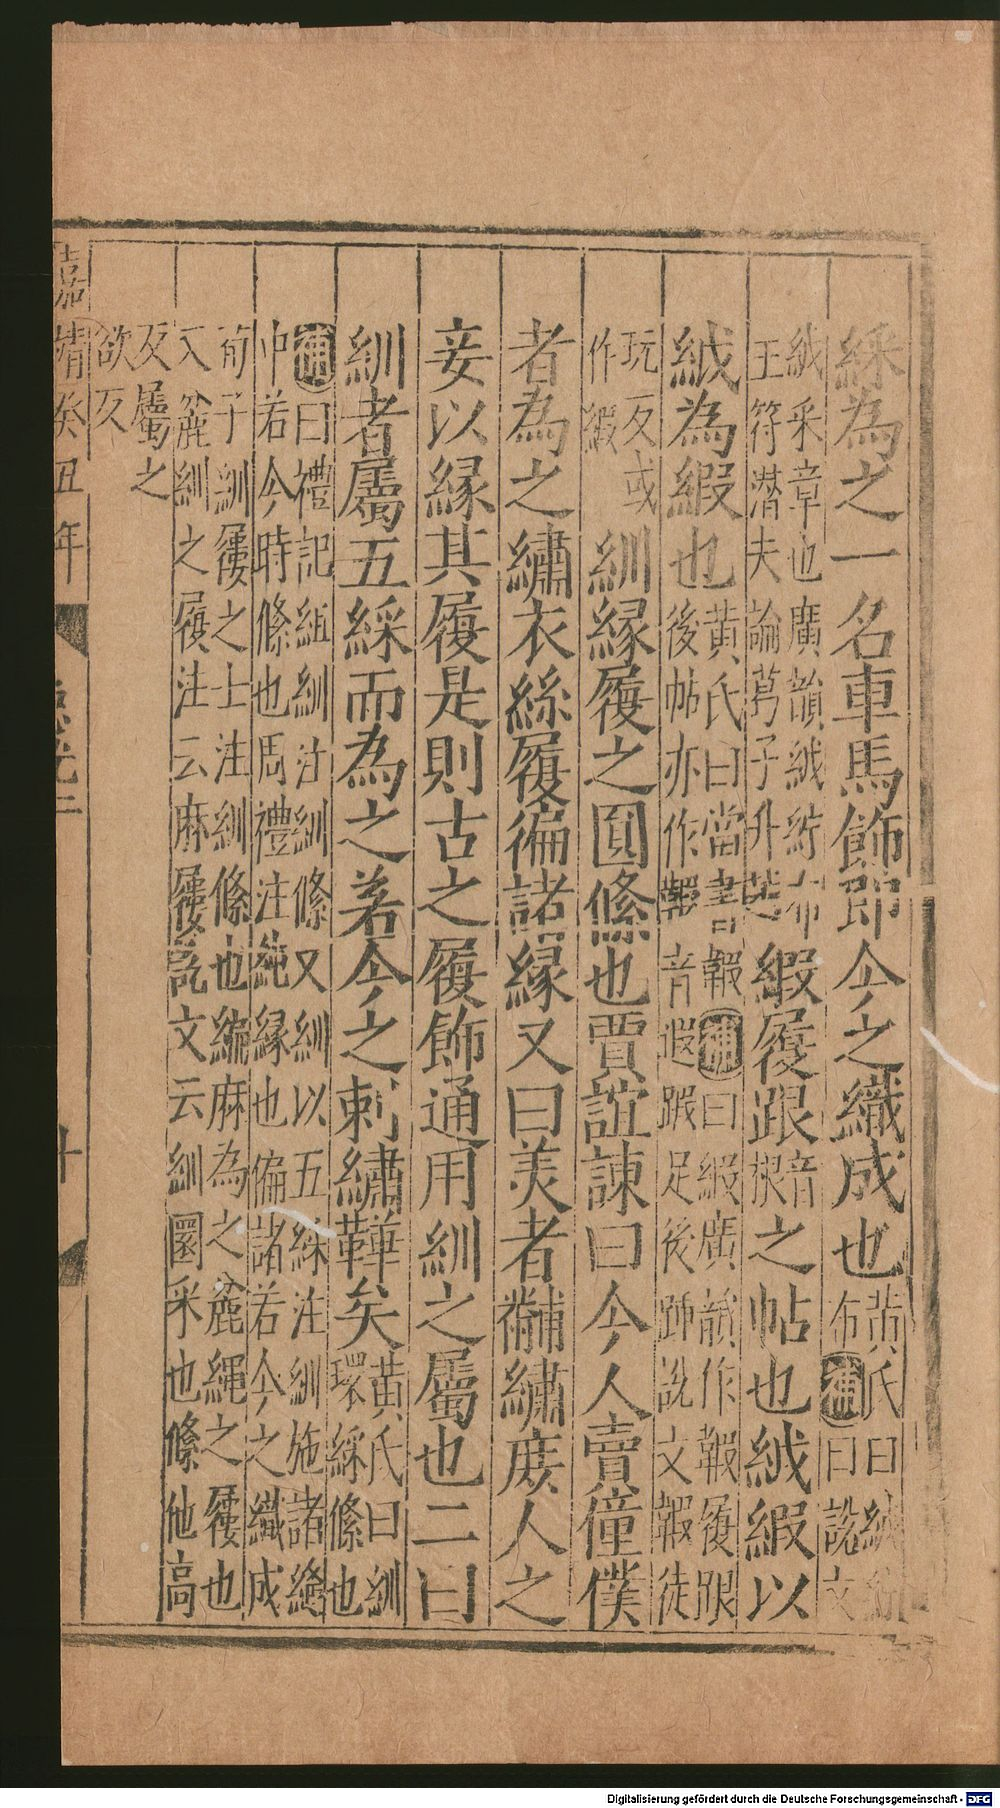 綵為之一名車馬飾即今之織成也黄氏曰絨紨布補曰說文
絨采章也廣韻絨紨布王符潜夫論葛子升越緞履跟音根之帖也絨緞以
絨為緞也黄氏曰當書鞎補曰緞廣韻作鞎履跟後帖亦作鞎音遐蹍足後跡說文鞎徒
玩反或作緞紃縁履之圓絛也賈誼諫曰今人賣僮僕
者為之繡衣絲履徧諸縁又曰美者黼繡庻人之
妾以縁其履是則古之履飾通用紃之屬也二曰
紃者屬五綵而為之若今之刺繡鞾矣黄氏曰紃環綵絛也
補曰禮記組紃注紃絛又紃以五綵注紃施諸縫中若今時絛也周禮注純縁也偏諸若今之織成
荀子紃屨之士注紃絛也編麻為之麄繩之屨也入麄紃之履注云麻屨說文云紃圜采也絛他高
反屬之欲反
嘉靖癸丑年 急就二 十
Digitalisierung gefördert durch die Deutsche Forschungsgemeinschaft - DFG